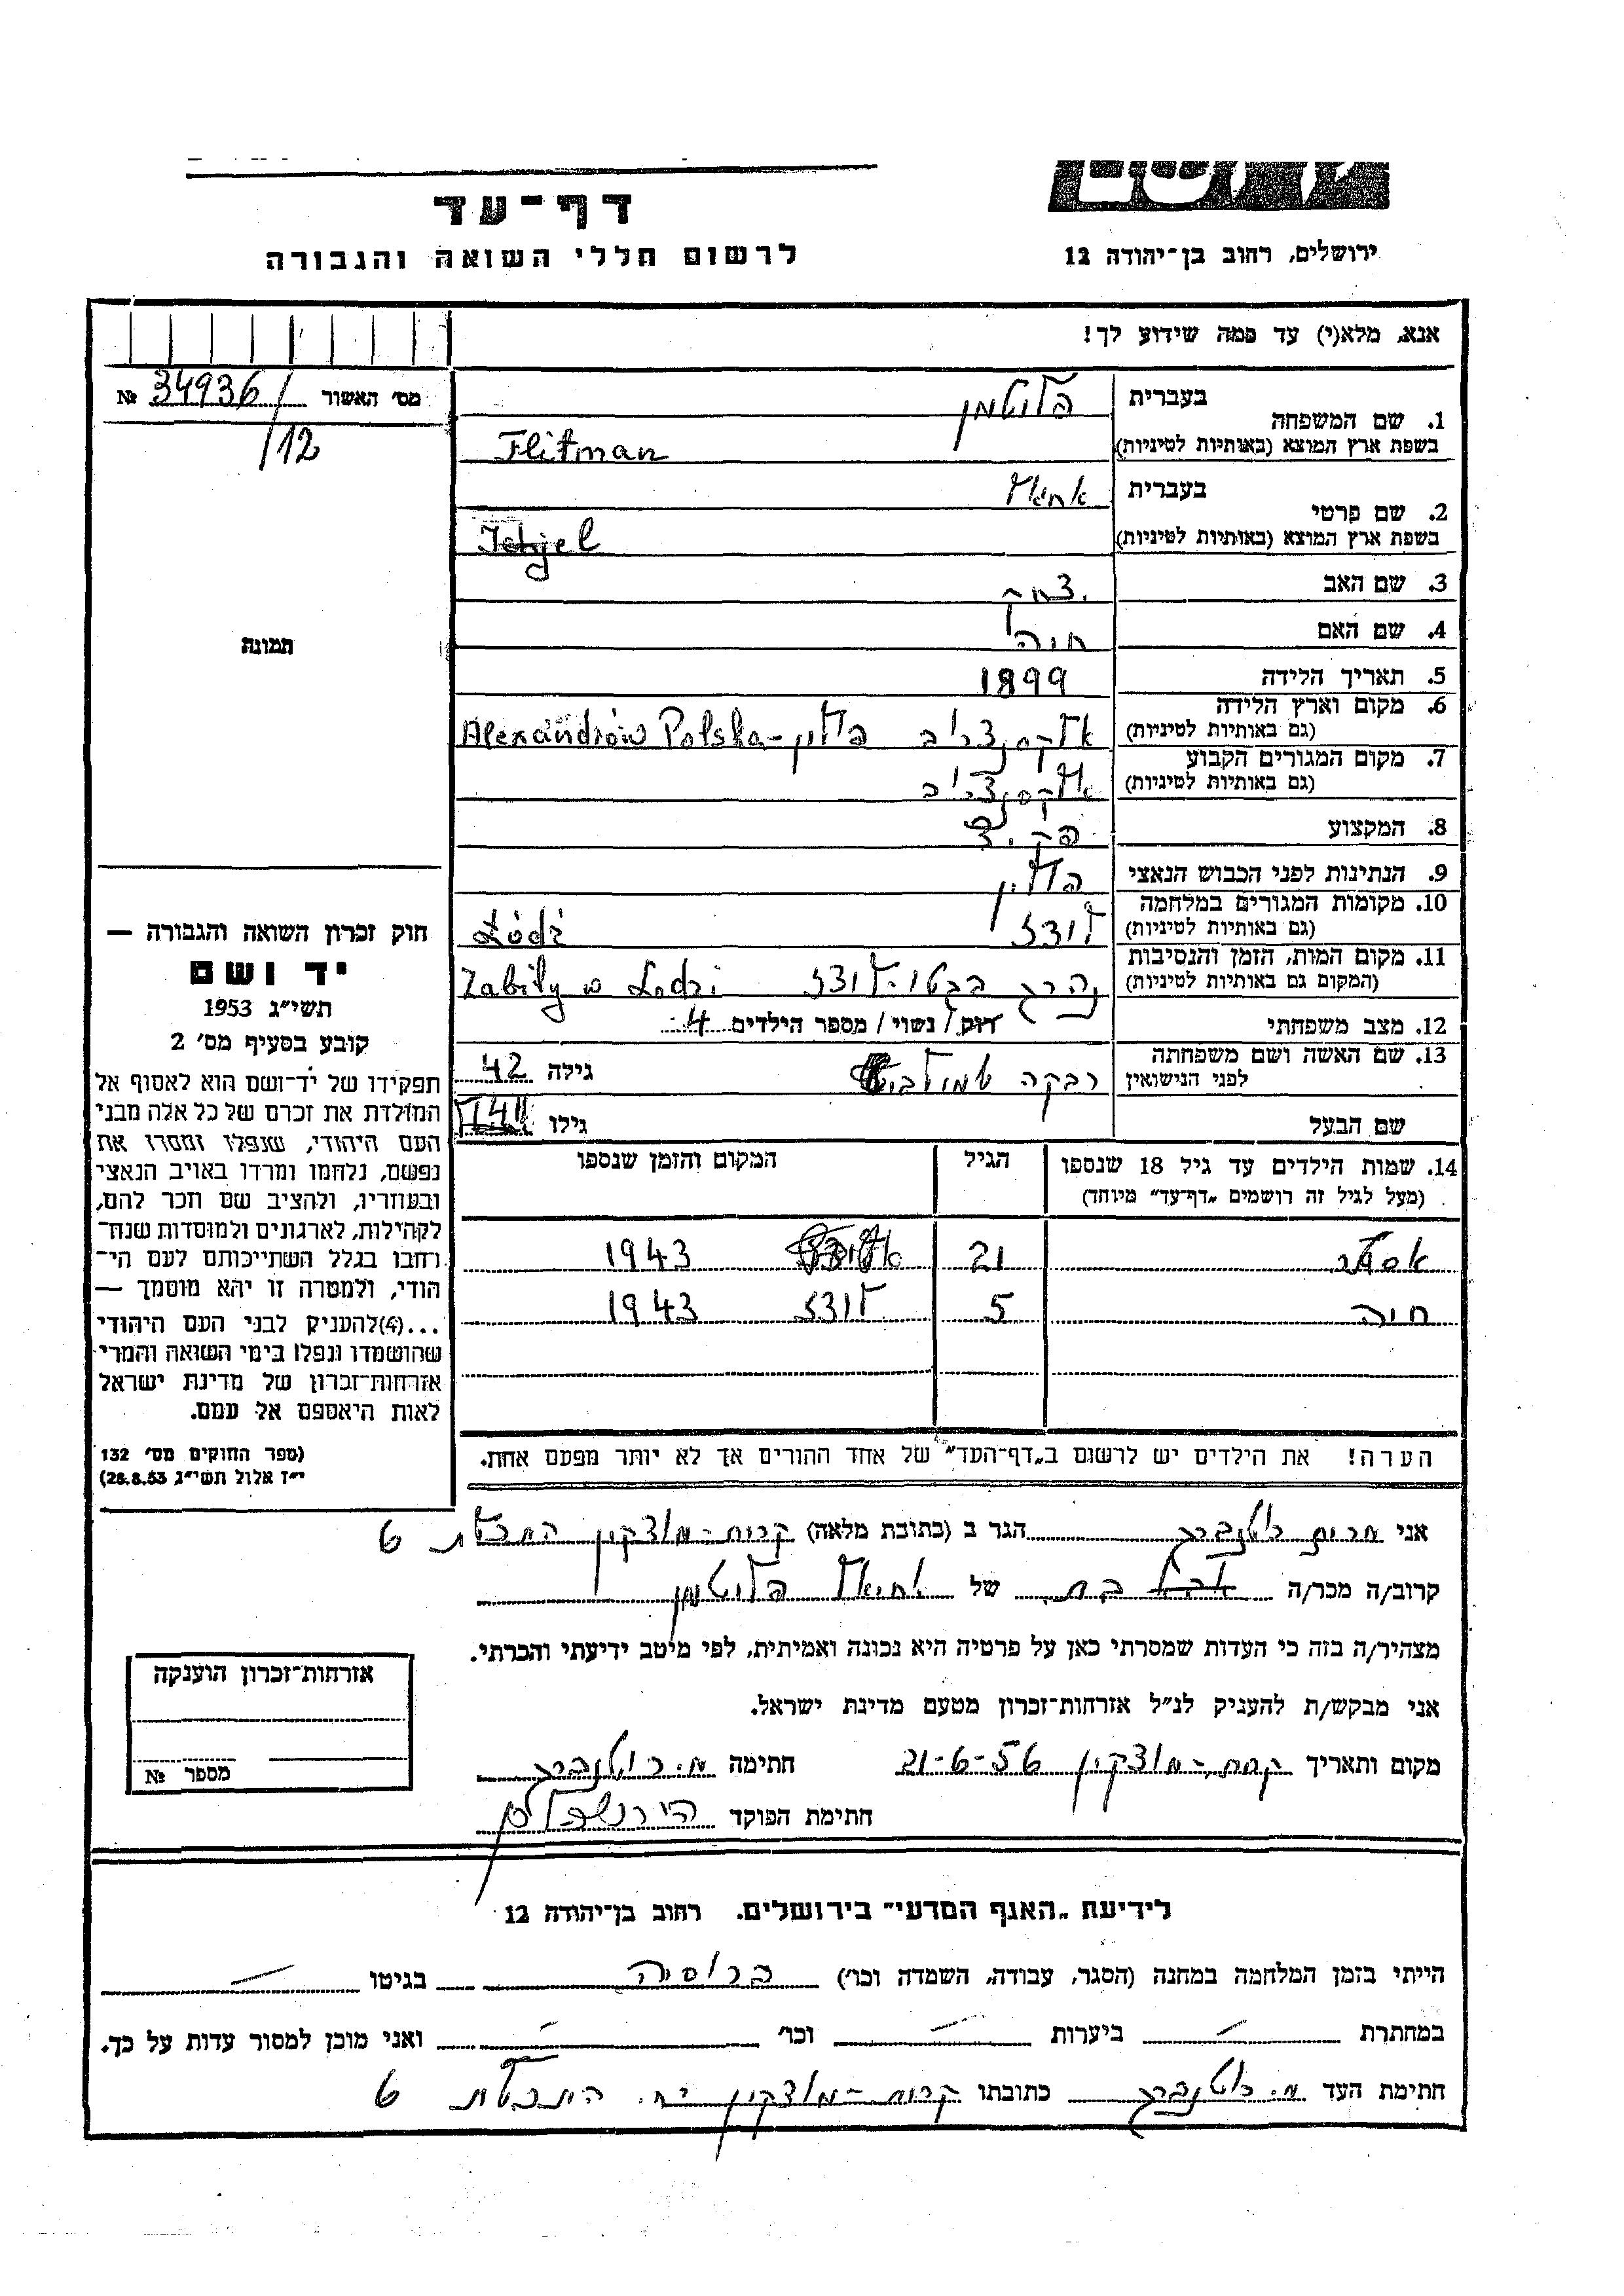 דף־עד
לרשום חללי השואה והגבורה
ירושלים, רחוב בן־יהודה 12
אנא, מלא(י) עד כמה שידוע לך!
מס׳ האשור 34936/ №
/12
1. שם המשפחה בעברית פליטמן
בשפת ארץ המוצא (באותיות לטיניות) Flitman
2. שם פרטי בעברית
בשפת ארץ המוצא (באותיות לטיניות)
3. שם האב
4. שם האם חיה
5. תאריך הלידה 1899
6. מקום וארץ הלידה
(גם באותיות לטיניות) אלכסנדריב פולין - Alexandrów Polska
7. מקום המגורים הקבוע
(גם באותיות לטיניות)
8. המקצוע פקיד
9. הנתינות לפני הכבוש הנאצי פולין
10. מקומות המגורים במלחמה
(גם באותיות לטיניות) לודז Łódź
11. מקום המות, הזמן והנסיבות
(המקום גם באותיות לטיניות) נהרג בגטו-לודז Zabity w Łodzi
12. מצב משפחתי רוק / נשוי / מספר הילדים 4
13. שם האשה ושם משפחתה
לפני הנישואין רבקה גילה 42
שם הבעל גילו
14. שמות הילדים עד גיל 18 שנספו הגיל המקום והזמן שנספו
(מעל לגיל זה רושמים „דף־עד” מיוחד)
אסתר 21 1943
חיה 5 לודז 1943
הערה! את הילדים יש לרשום ב„דף־העד” של אחד ההורים אך לא יותר מפעם אחת.
תמונה
חוק זכרון השואה והגבורה —
יד ושם
תשי״ג 1953
קובע בסעיף מס׳ 2
תפקידו של יד־ושם הוא לאסוף אל
המולדת את זכרם של כל אלה מבני
העם היהודי, שנפלו ומסרו את
נפשם, נלחמו ומרדו באויב הנאצי
ובעוזריו, ולהציב שם וזכר להם,
לקהילות, לארגונים ולמוסדות שנח־
רבו בגלל השתייכותם לעם הי־
הודי, ולמטרה זו יהא מוסמך —
...(4) להעניק לבני העם היהודי
שהושמדו ונפלו בימי השואה והמרי
אזרחות־זכרון של מדינת ישראל
לאות היאספם אל עמם.
(ספר החוקים מס׳ 132
י״ז אלול תשי״ג 28.8.53)
אני מרים הגר ב (כתובת מלאה) קרית-מוצקין התכלת 6
קרוב/ה מכר/ה בת של יחיאל פליטמן
מצהיר/ה בזה כי העדות שמסרתי כאן על פרטיה היא נכונה ואמיתית, לפי מיטב ידיעתי והכרתי.
אני מבקש/ת להעניק לנ״ל אזרחות־זכרון מטעם מדינת ישראל.
מקום ותאריך קרית-מוצקין 21-6-56 חתימה
חתימת הפוקד
אזרחות־זכרון הוענקה
מספר №
לידיעת „האגף המדעי” בירושלים. רחוב בן־יהודה 12
הייתי בזמן המלחמה במחנה (הסגר, עבודה, השמדה וכו׳) ברוסיה בגיטו —
במחתרת — ביערות — וכו׳ — ואני מוכן למסור עדות על כך.
חתימת העד כתובתו קרית-מוצקין רח. התכלת 6